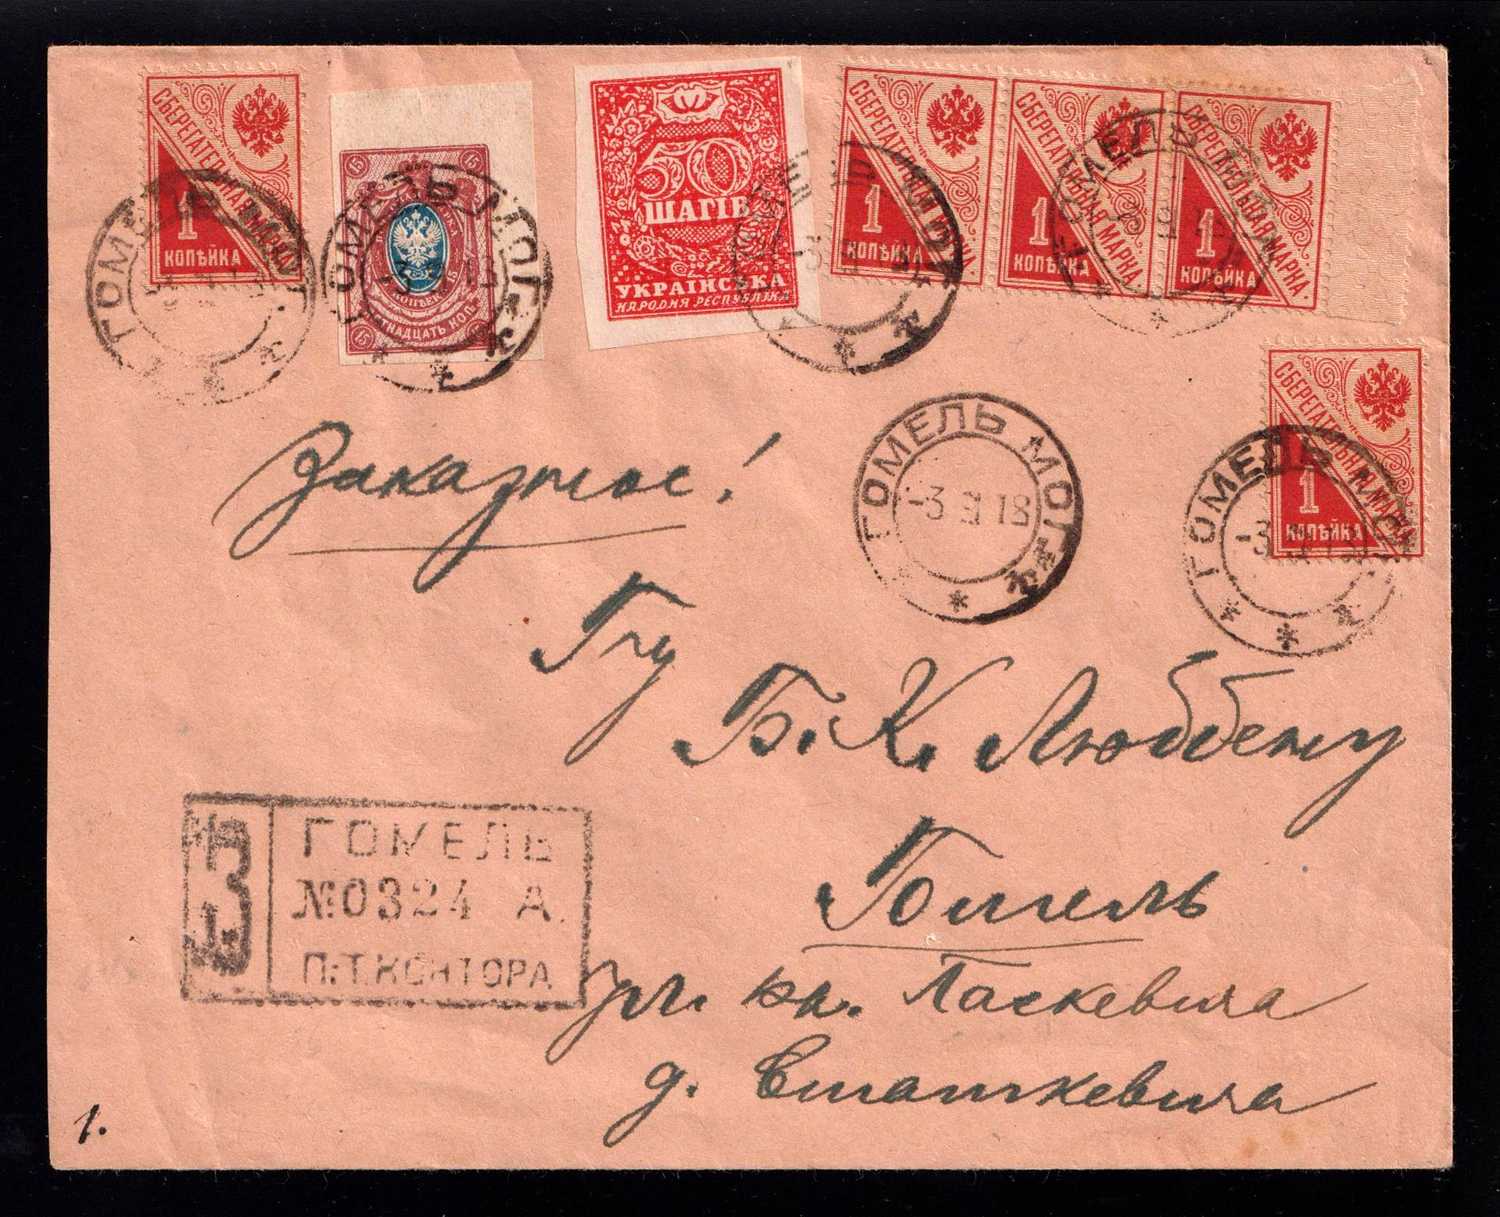 СБЕРЕГАТЕЛЬНАЯ МАРКА
1
КОПѢЙКА
15 15
15
КОПѢЕКЪ
ПЯТНАДЦАТЬ КОП.
15 15
50
ШАГІВ
УКРАЇНСЬКА
НАРОДНЯ РЕСПУБЛІКА
СБЕРЕГАТЕЛЬНАЯ МАРКА
1
КОПѢЙКА
СБЕРЕГАТЕЛЬНАЯ МАРКА.
1
КОПѢЙКА
СБЕРЕГАТЕЛЬНАЯ МАРКА.
1
КОПѢЙКА
СБЕРЕГАТЕЛЬНАЯ МАРКА
1
КОПѢЙКА
ГОМЕЛЬ МОГ.
ГОМЕЛЬ МОГ.
ГОМЕЛЬ МОГ.
ГОМЕЛЬ
ГОМЕЛЬ МОГ.
-3 XI 18
ГОМЕЛЬ
Заказное!
Гну
Б. К. Люббену
Гомель
ул. кн. Паскевича
д.
З
ГОМЕЛЬ
№0324 А.
П.-Т. КОНТОРА
1.